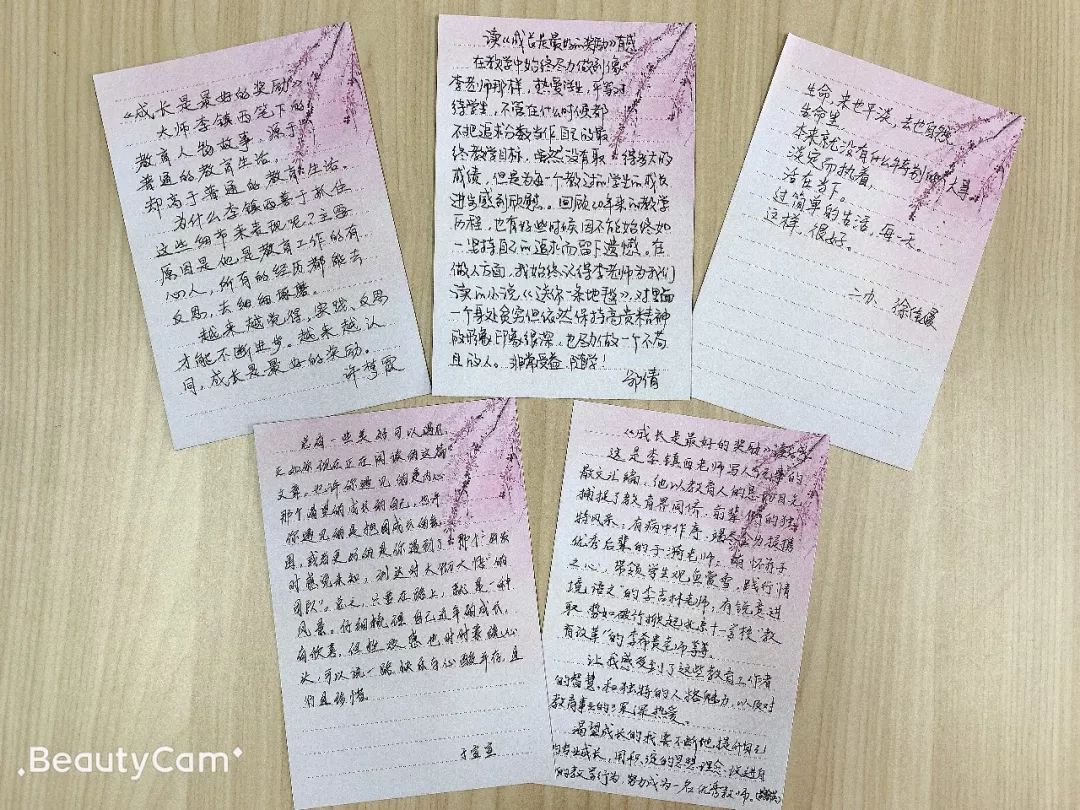 《成长是最好的奖励》
大师李镇西笔下的
教育人物故事，源于
普通的教育生活，
却高于普通的教育生活。
为什么李镇西善于抓住
这些细节来表现呢？主要
原因是他是教育工作的有
心人，所有的经历都能去
反思，去细细琢磨。
越来越觉得，实践、反思
才能不断进步。越来越认
同，成长是最好的奖励。
许梦霞
读《成长是最好的奖励》有感
在教学中始终尽力做到像
李老师那样，热爱学生，平等对
待学生，不管在什么时候都
不把追求分数当作自己的最
终教学目标，虽然没有取得多大的
成绩，但是为每一个教过的学生的成长
进步感到欣慰。回顾20年来的教学
历程，也有好些时候因不能始终如
一坚持自己的追求而留下遗憾。在
做人方面，我始终记得李老师为我们
读的小说《送你一条地毯》，对里面
一个身处贫穷但依然保持高贵精神
的形象印象很深，也努力做一个不苟
且的人。非常受益，随学！
邹倩
生命，来也平淡，去也自然
生命里
本来就没有什么特别的大事。
淡定而执着，
活在当下。
过简单的生活，每一天。
这样，很好。
二办 徐
总有一些美好可以遇见
正如你现在正在阅读的这篇
文章。也许你遇见的是内心
那个渴望的成长的自己，也许
你遇见的是热因成长的氛
围，或者更好的是你遇到了那个"朋友
时感觉未知，到达时大彻大悟"的
团队"。总之，只要在路上，就是一种
风景。仔细梳理自己近年的成长，
有欣喜，但挫败感也时时萦绕心
头，可以说一路快乐与心酸并存，且
行且珍惜。
于宣
《成长是最好的奖励》读后感
这是李镇西老师写人与无事的
散文汇编，他以教育人的思 目光
捕捉了教育界同侪、前辈们的独
特风采：有病中作序，竭尽全力提携
优秀后辈的于漪老师；葆怀赤子
之心，带领学生观鱼赏雪，践行"情
境语文"的李吉林老师；有锐意进
取 势如破竹掀起北京十一学校"教
育改革"的李希贵老师等等。
让我感受到了这些教育工作者
的智慧，和独特的人格魅力，以及对
教育事业的深深热爱。
渴望成长的我要不断地提升自己
的专业成长，用积淀的思想理念，改进自己
的教育行为，努力成为一名优秀教师。
BeautyCam